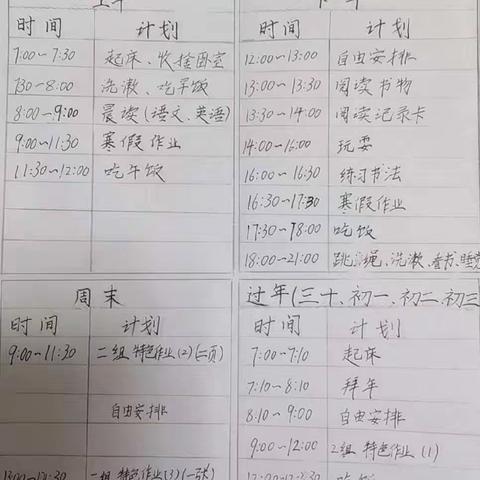 上午
时间 计划
7:00~7:30 起床、收拾卧室
7:30~8:00 洗漱、吃早饭
8:00~9:00 晨读(语文、英语)
9:00~11:30 寒假作业
11:30~12:00 吃午饭
下午
时间 计划
12:00~13:00 自由安排
13:00~13:30 阅读书物
13:30~14:00 阅读记录卡
14:00~16:00 玩耍
16:00~16:30 练习书法
16:30~17:30 寒假作业
17:30~18:00 吃饭
18:00~21:00 跳绳、洗漱、看书、睡觉
周末
时间 计划
9:00~11:30 二组 特色作业(2)(二页)
自由安排
一组 特色作业(3)(一张)
过年(三十、初一、初二、初三
时间 计划
7:00~7:10 起床
7:10~8:10 拜年
8:10~9:00 自由安排
9:00~12:00 2组 特色作业(1)
吃饭